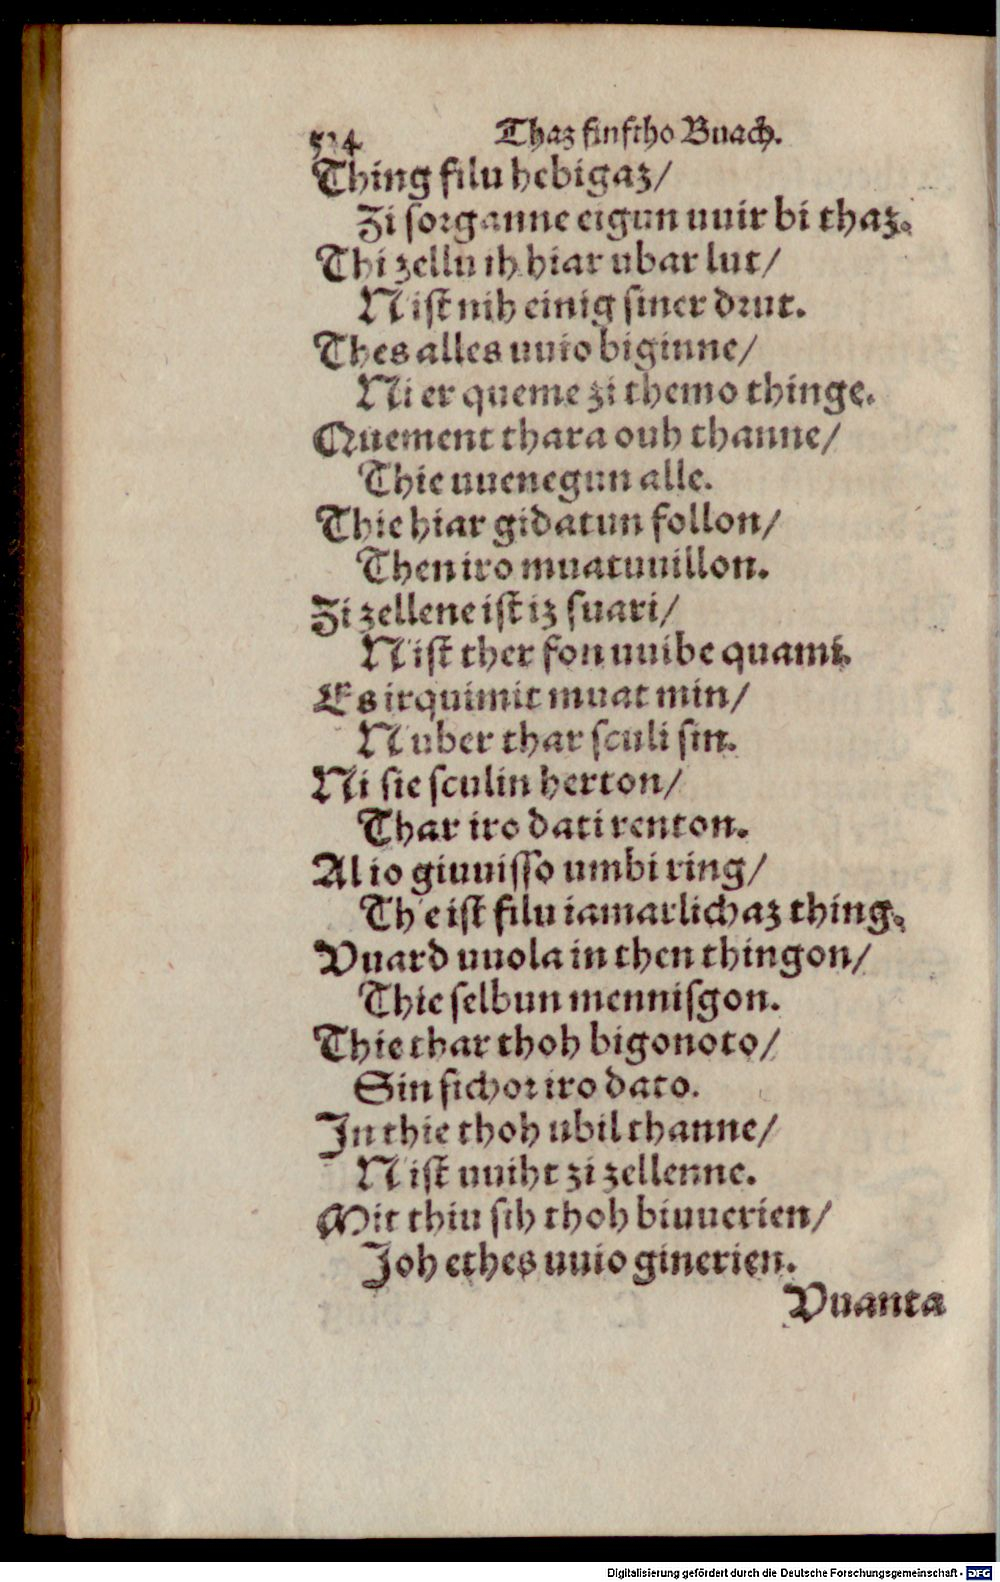 524 Thaz finftho Buach.
Thing filu hebigaz/
Zi ſorganne eigun uuir bi thaz.
Thi zellu ih hiar ubar lut/
Niſt nih einig ſiner drut.
Thes alles uuio biginne/
Ni er queme zi themo thinge.
Quement thara ouh thanne/
Thie uuenegun alle.
Thie hiar gidatun follon/
Then iro muatuuillon.
Zi zellene iſt iz ſuari/
Niſt ther fon uuibe quami.
Es irquimit muat min/
Nuber thar ſculi ſin.
Ni ſie ſculin herton/
Thar iro dati renton.
Al io giuuiſſo umbi ring/
Theiſt filu iamarlichaz thing.
Vuard uuola in then thingon/
Thie ſelbun menniſgon.
Thie thar thoh bigonoto/
Sin ſichor iro dato.
In thie thoh ubil thanne/
Niſt uuiht zi zellenne.
Mit thiu ſih thoh biuuerien/
Joh ethes uuio ginerien.
Vuanta
Digitalisierung gefördert durch die Deutsche Forschungsgemeinschaft - DFG